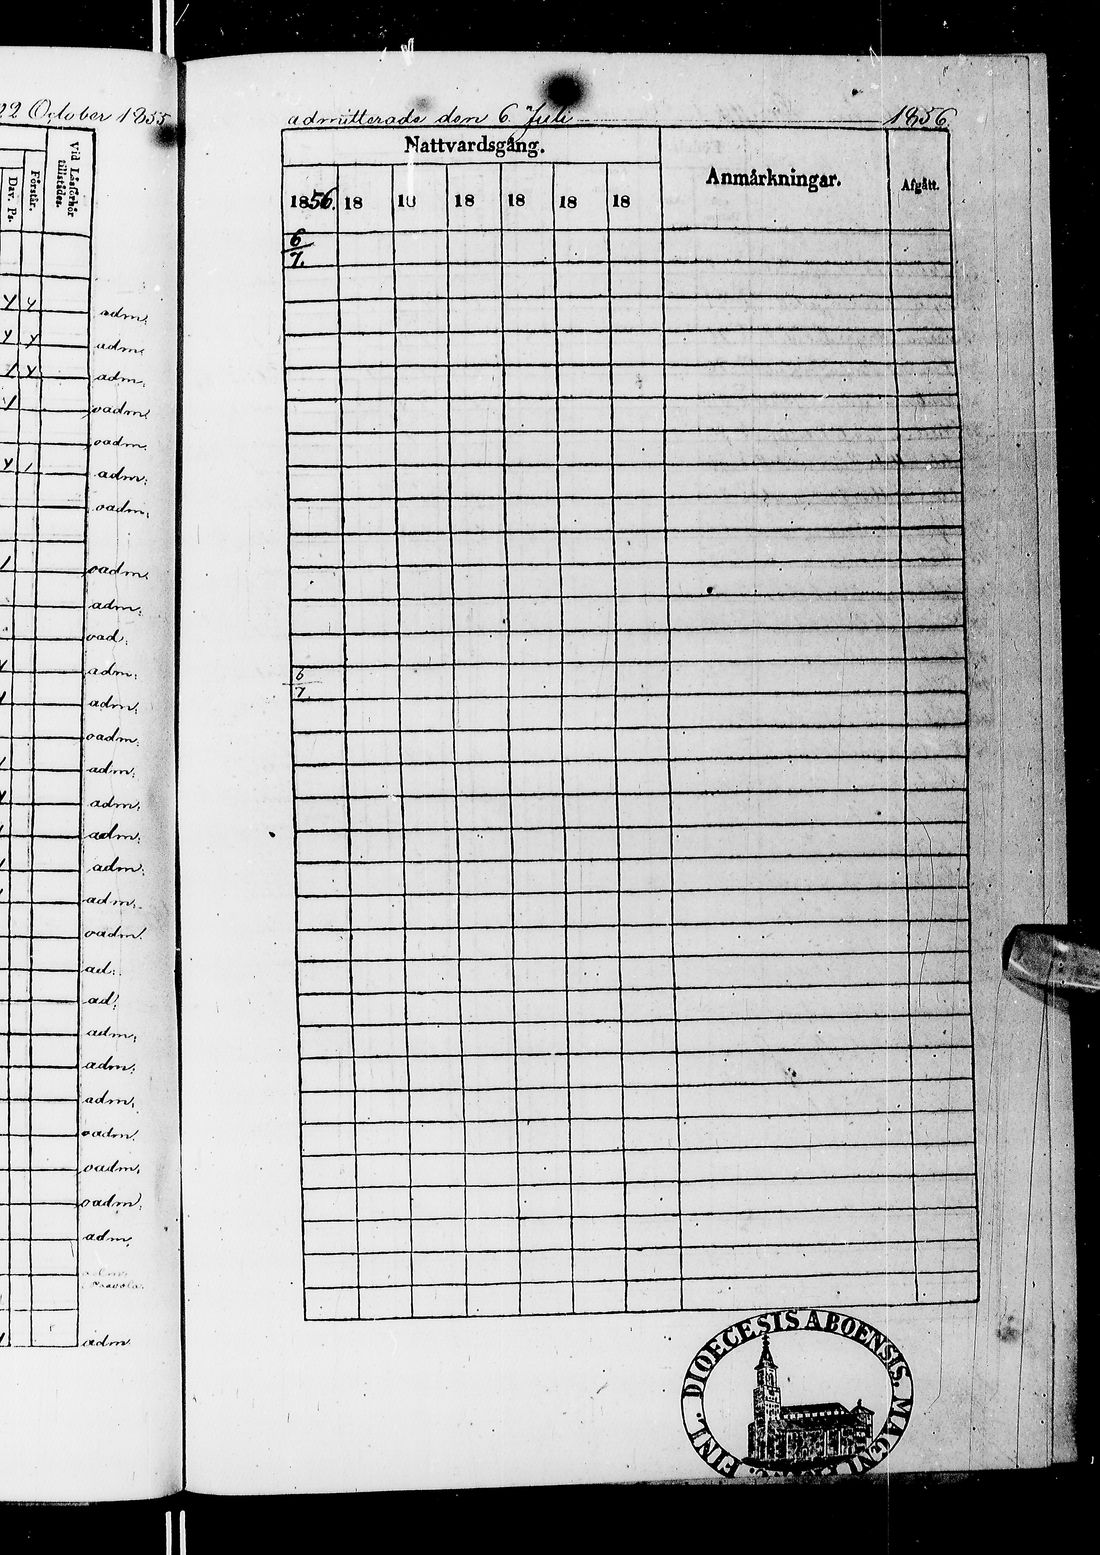 22 October 1855
Vid Läsförhör tillstädes.
Förstår.
Dav. Ps.
adm:
adm:
adm:
oadm:
oadm:
adm:
oadm:
oadm:
adm:
oad:
adm:
adm:
oadm:
adm:
adm:
adm:
adm:
adm:
oadm:
ad:
ad:
adm:
adm:
adm:
oadm:
oadm:
oadm:
adm:
adm
admitterade den 6 Juli 1856
Nattvardsgång.
Anmärkningar.
Afgått.
1856. 18 18 18 18 18 18
6/7.
6/7.
DIOECESIS ABOENSIS. MAGNI FINL.